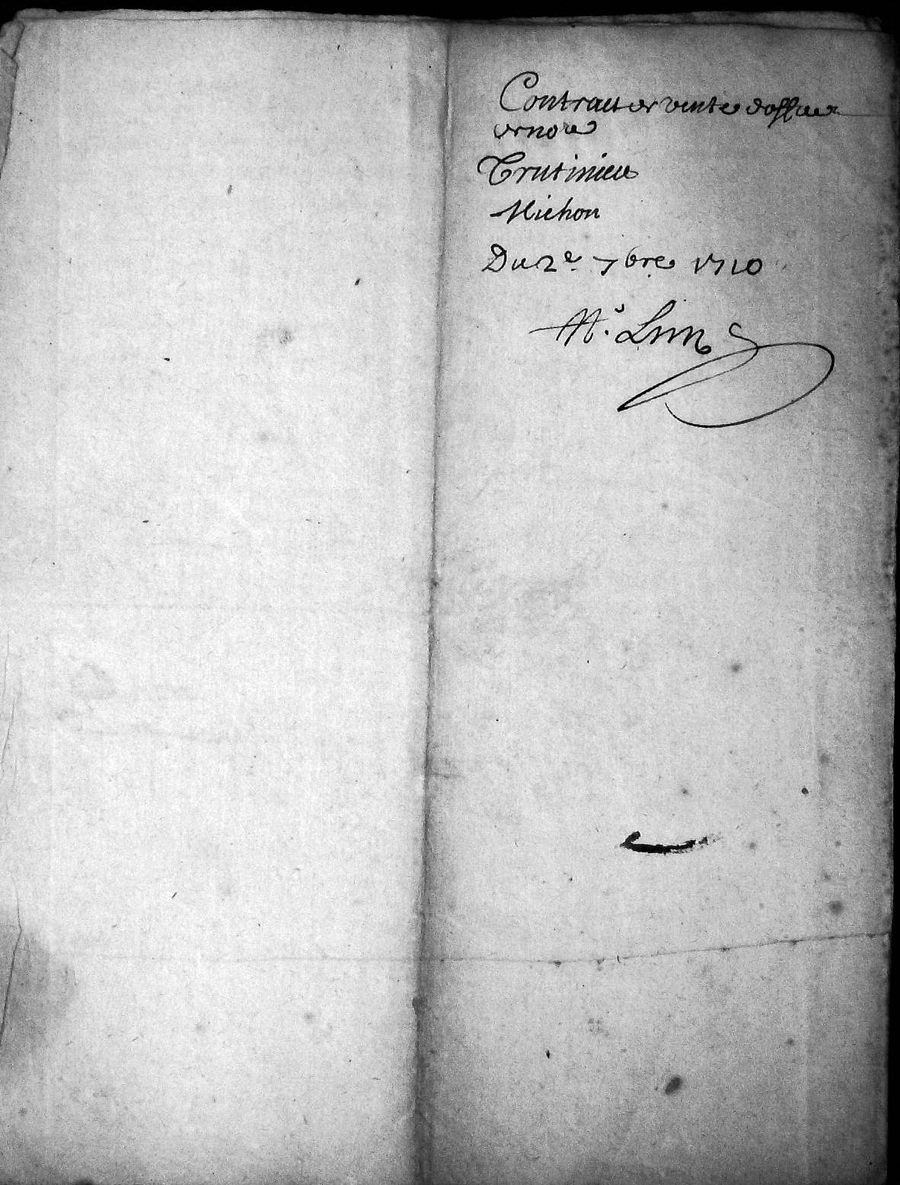 Contract de vente d'office
de no.re
Trutinieu
Michon
Du 2e 7bre 1710
Mr.